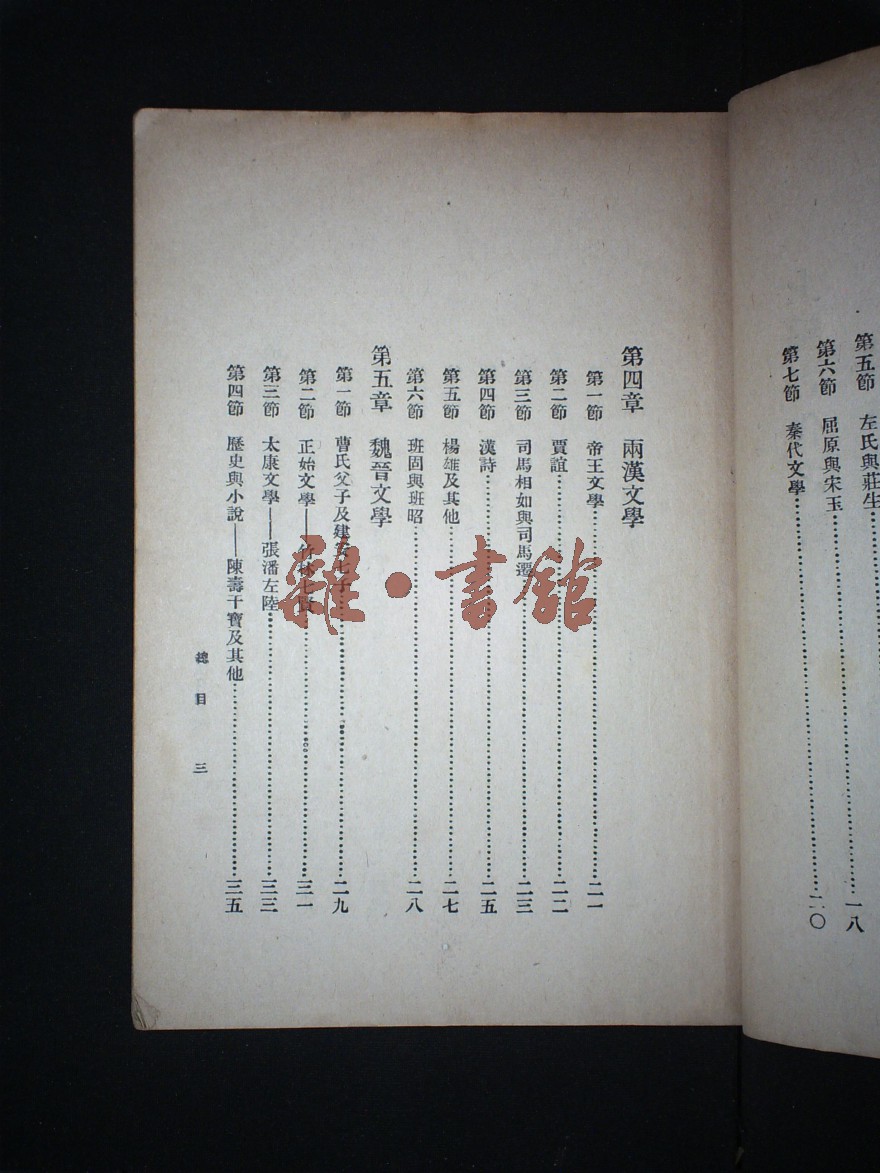 第五節　左氏與莊生……一八
第六節　屈原與宋玉……二〇
第七節　秦代文學……
第四章　兩漢文學
第一節　帝王文學……二一
第二節　賈誼……二二
第三節　司馬相如與司馬遷……二三
第四節　漢詩……二五
第五節　楊雄及其他……二七
第六節　班固與班昭……二八
第五章　魏晉文學
第一節　曹氏父子及建安七子……二九
第二節　正始文學——竹林七賢……三一
第三節　太康文學——張潘左陸……三三
第四節　歷史與小說——陳壽干寶及其他……三五
總目　三
雜·書館